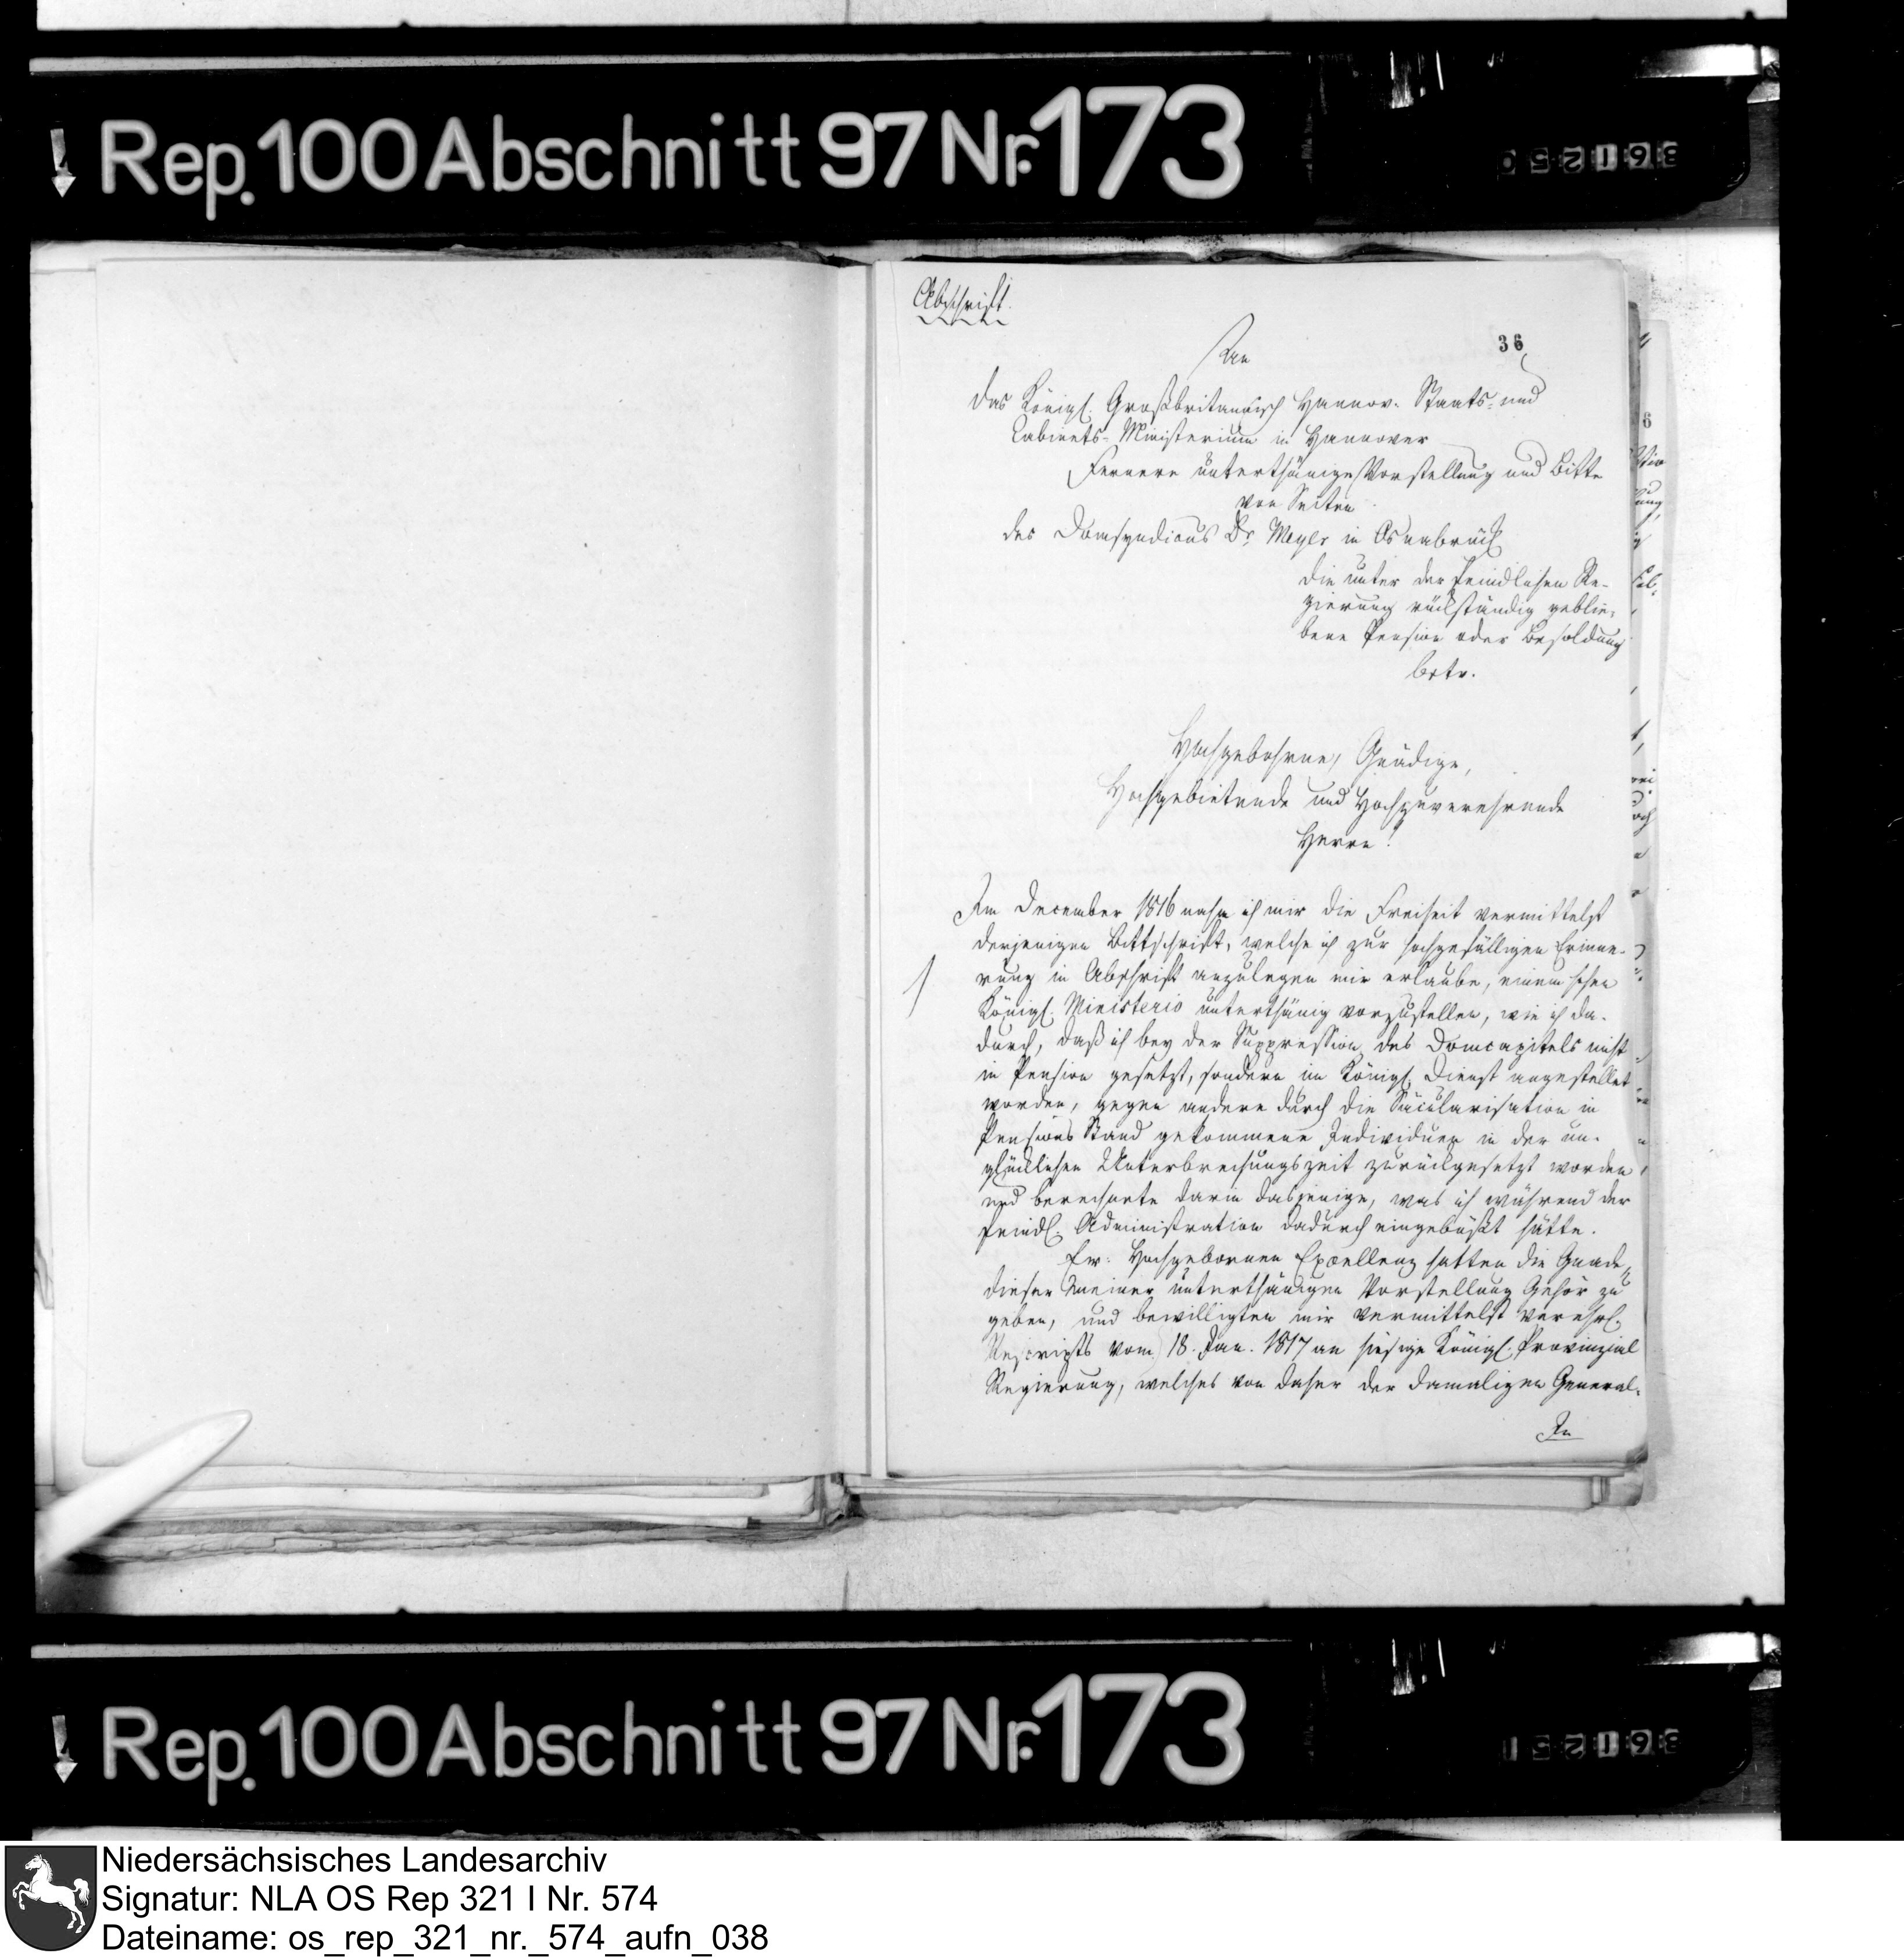 Rep. 100 Abschnitt 97 Nr. 173
Abschrift.
36
An
das Königl. Großbritannisch Hannov. Staats- und
Cabinets-Ministerium in Hannover
Fernere unterthänige Vorstellung und Bitte
von Seiten
des Domsyndicus Dr. Meyer in Osnabrück
die unter der feindlichen Re-
gierung rückständig geblie-
bene Pension oder Besoldung
betr.
Hochgebohrne, Gnädige,
Hochgebietende und Hochzuverehrende
Herrn!
Im December 1816 nahm ich mir die Freiheit vermittelst
derjenigen Bittschrift, welche ich zur hochgefälligen Erinne-
rung in Abschrift anzulegen mir erlaube, einem hohen
Königl. Ministerio unterthänig vorzustellen, wie ich da-
durch, daß ich bey der Suppression des Domcapitels nicht
in Pension gesetzt, sondern im Königl. Dienst angestellet
worden, gegen andere durch die Säcularisation in
Pensions Stand gekommene Individuen in der un-
glücklichen Unterbrechungszeit zurückgesetzt worden
und berechnete darin dasjenige, was ich während der
feindl. Administration dadurch eingebüßt hätte.
Ew. Hochgebornen Excellenz hatten die Gnade,
dieser meiner unterthänigen Vorstellung Gehör zu
geben, und bewilligten mir vermittelst verehrl.
Rescripts vom 18. Jan. 1817 an hiesige Königl. Provinzial
Regierung, welches von daher der damaligen General-
In
Rep. 100 Abschnitt 97 Nr. 173
Niedersächsisches Landesarchiv
Signatur: NLA OS Rep 321 I Nr. 574
Dateiname: os_rep_321_nr._574_aufn_038